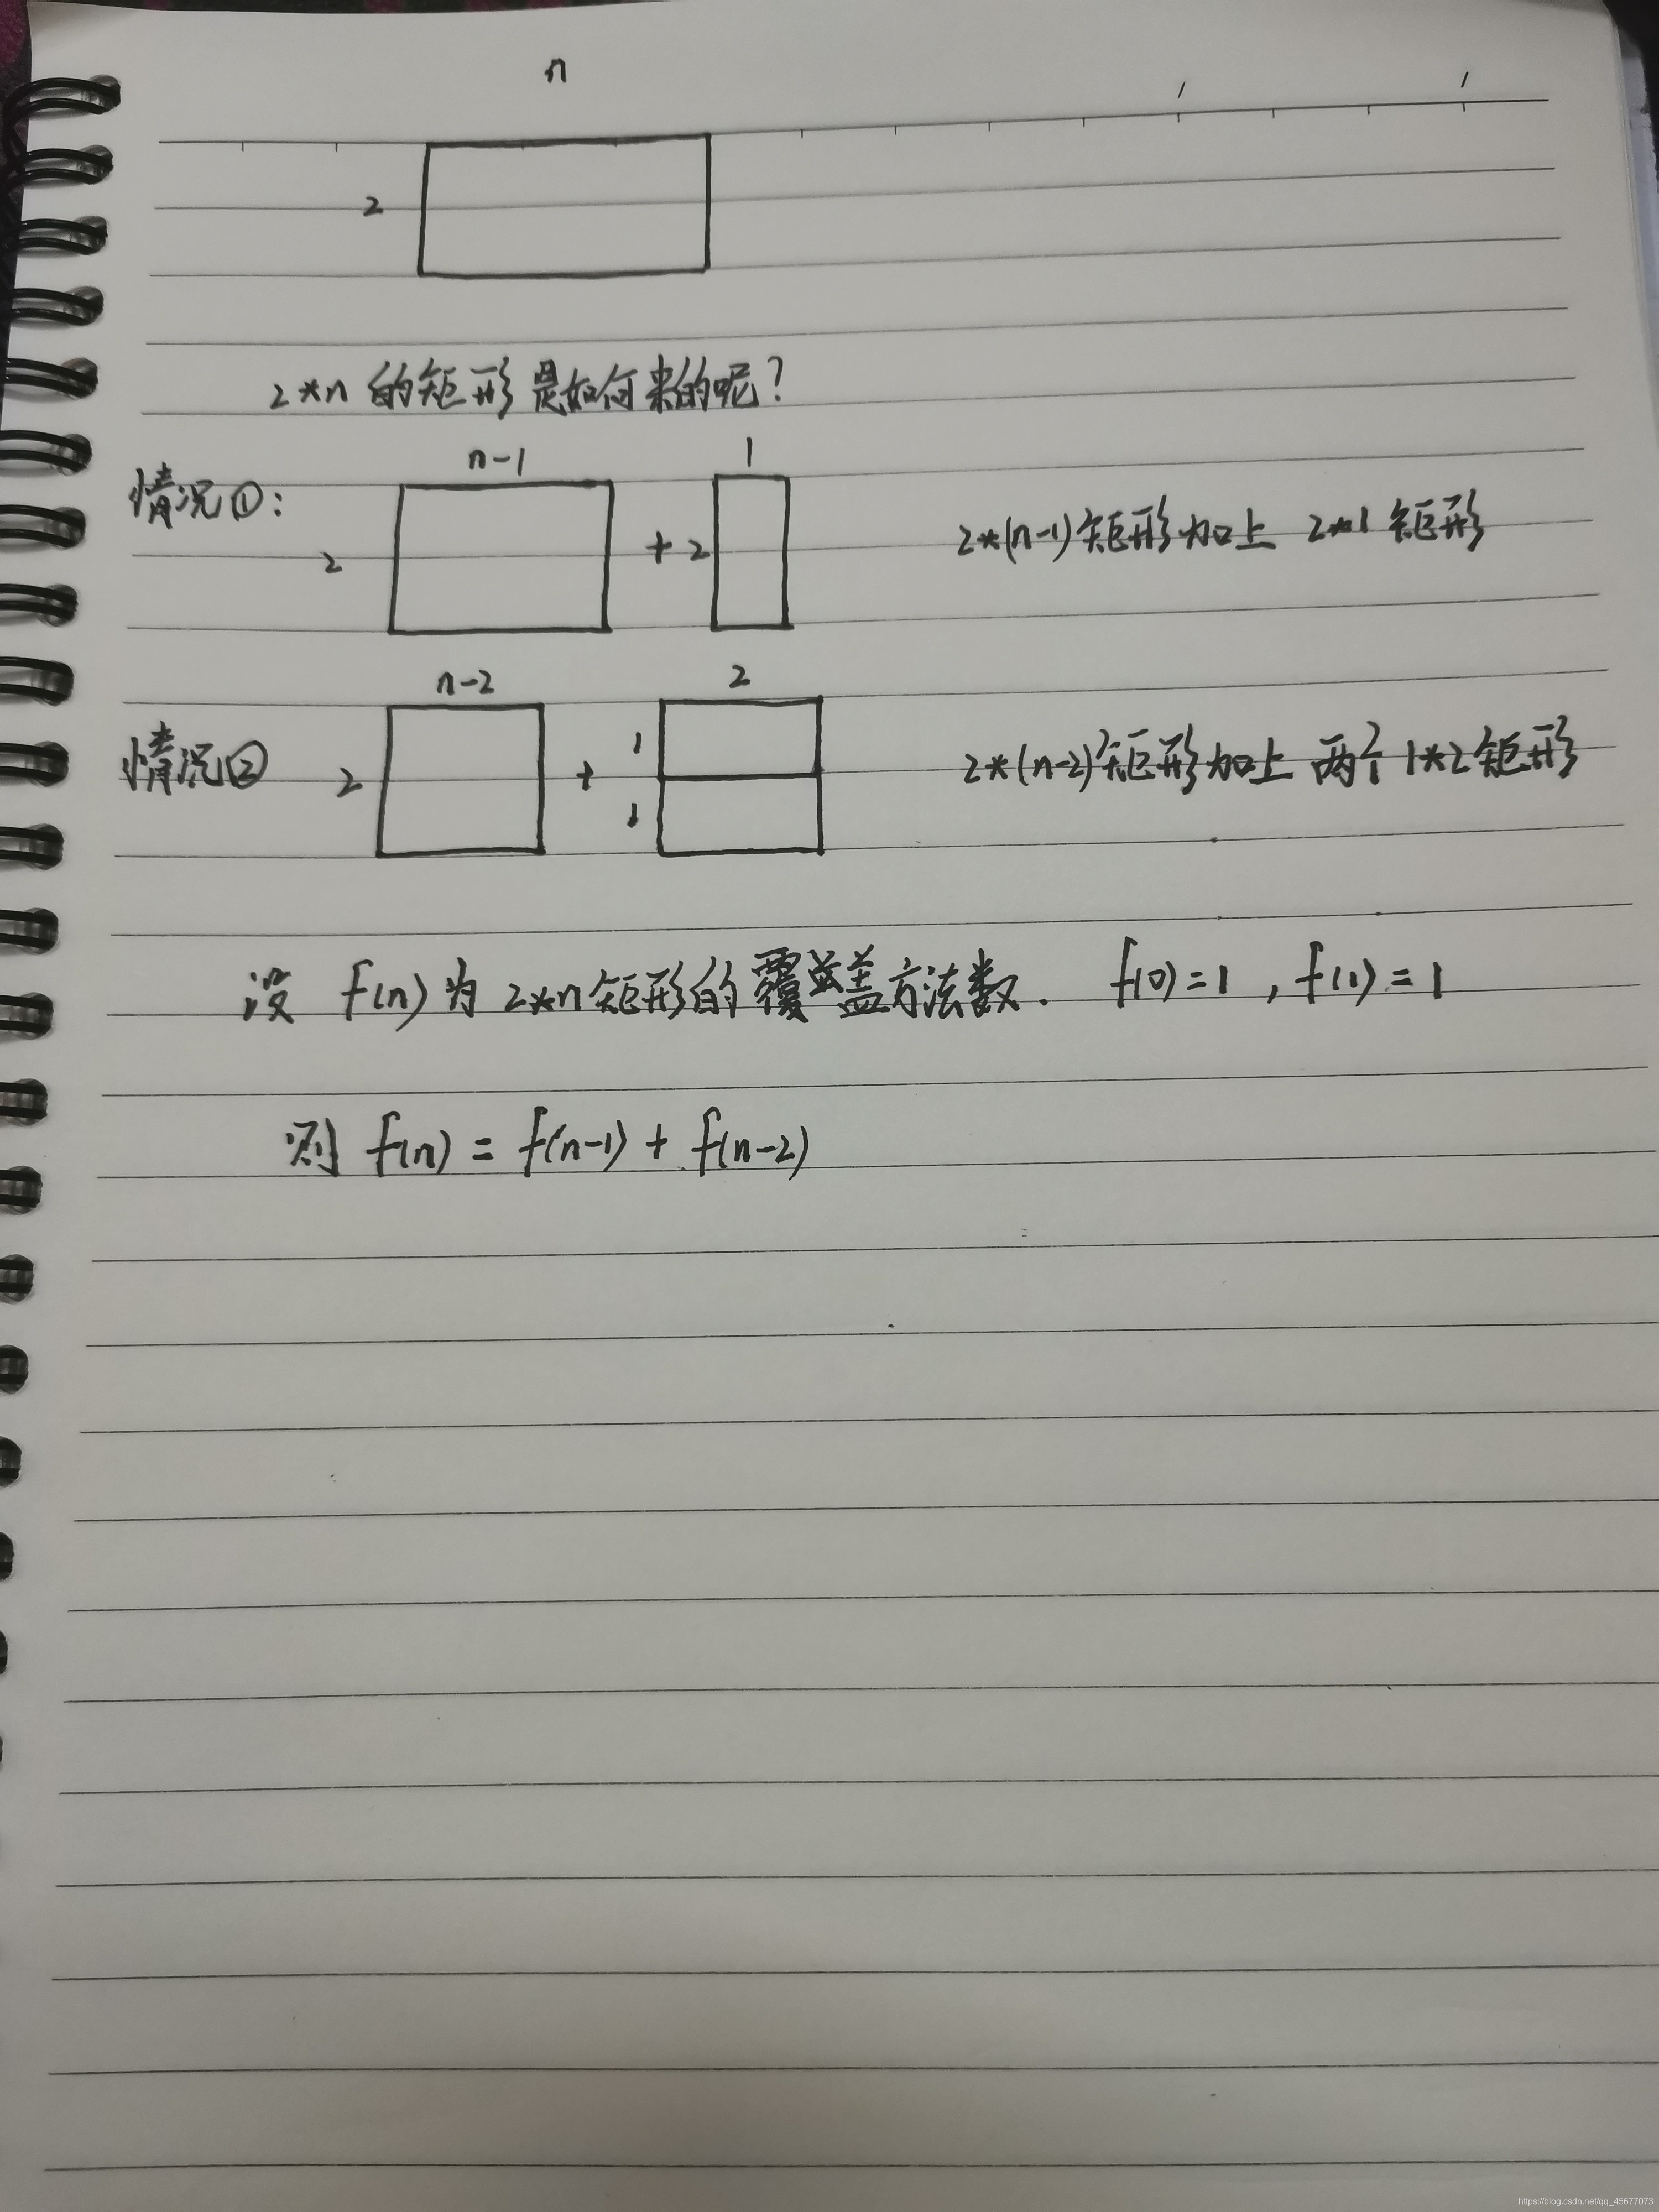 n
2
2*n 的矩形是如何来的呢?
n-1 1
情况①: 2 + 2 2*(n-1)矩形加上 2*1矩形
n-2 2
情况② 2 + 1 1 2*(n-2)矩形加上 两个 1*2矩形
设 f(n)为 2*n矩形的覆盖方法数. f(0)=1 , f(1)=1
则 f(n) = f(n-1) + f(n-2)
https://blog.csdn.net/qq_45677073